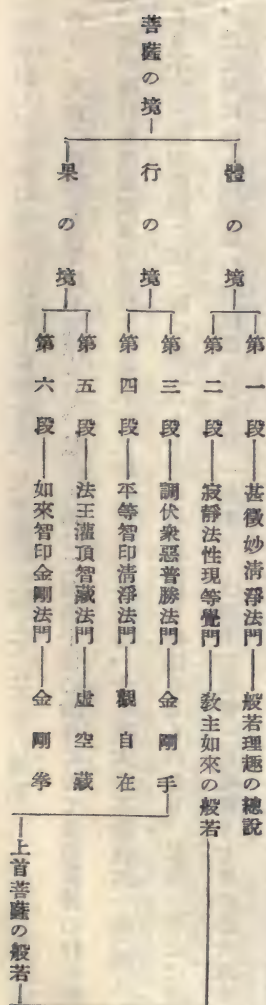 菩薩の境
體の境
行の境
果の境
第一段 甚微妙清淨法門 般若理趣の總說
第二段 寂靜法性現等覺門 敎主如來の般若
第三段 調伏衆惡普勝法門 金剛手
第四段 平等智印清淨法門 觀自在
第五段 法王灌頂智藏法門 虛空藏
第六段 如來智印金剛法門 金剛拳
上首菩薩の般若